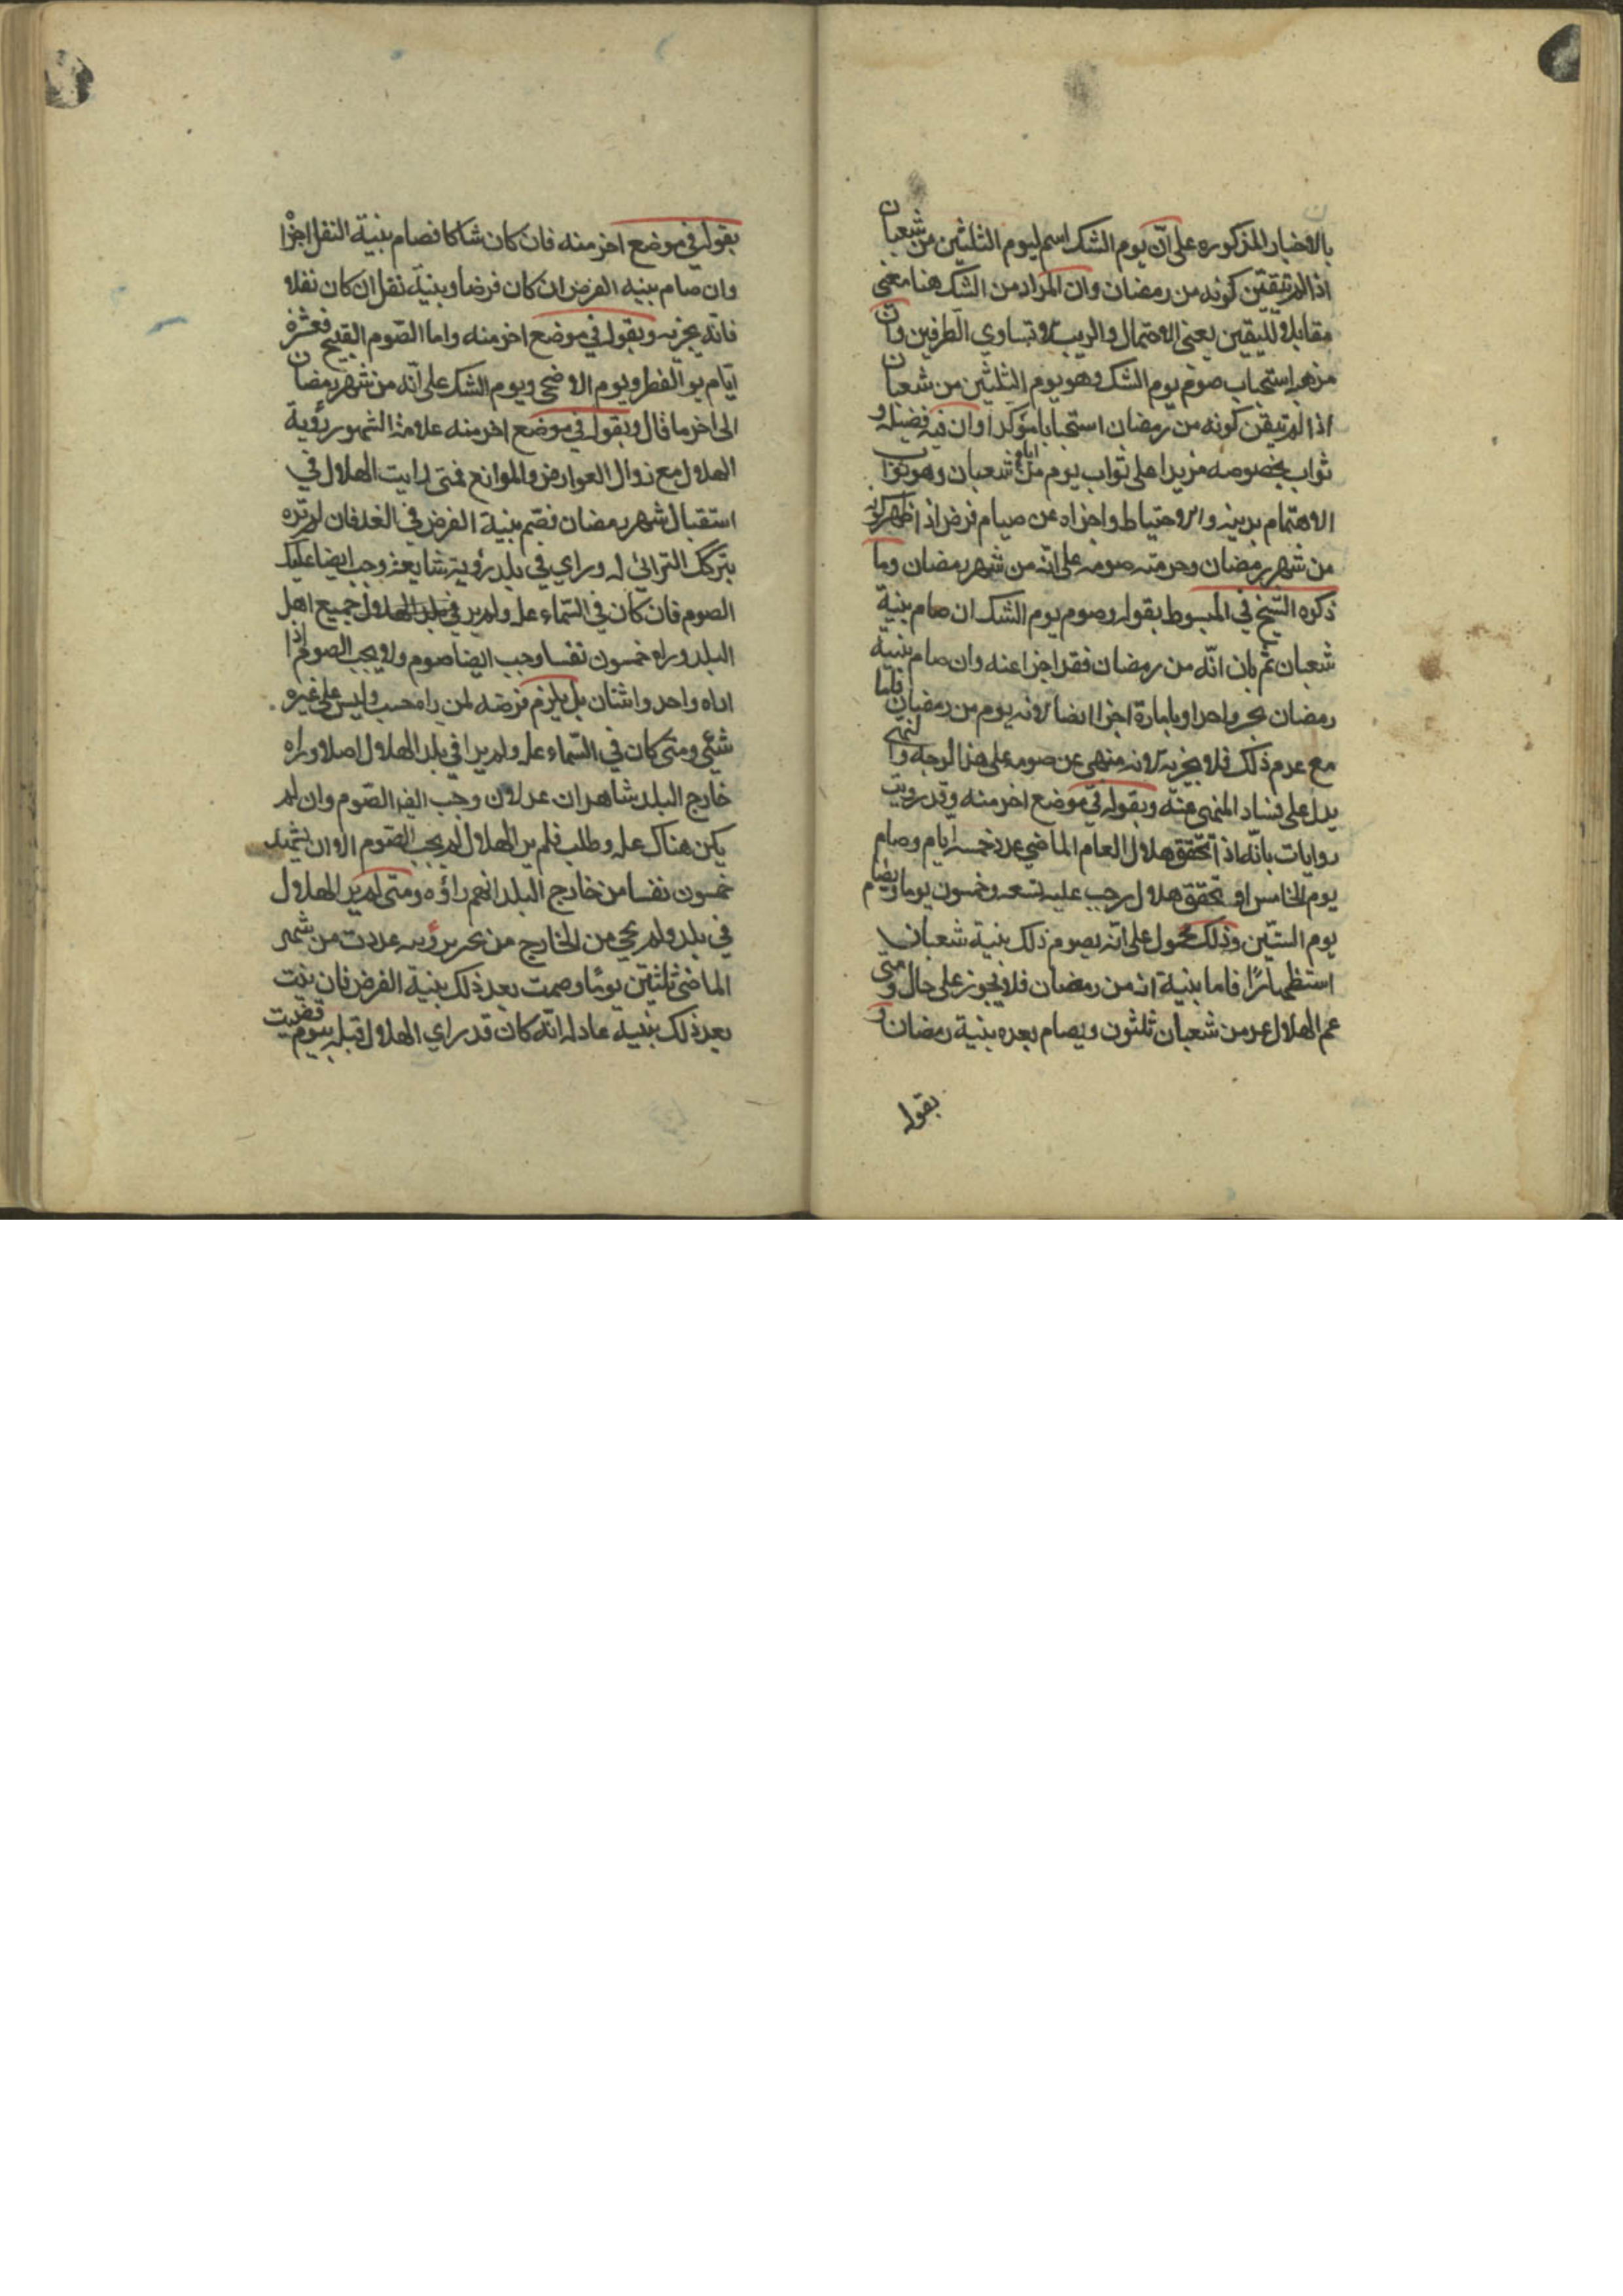 بالاخبار المذكوره على انّ يوم الشك اسم ليوم الثلثين من شعبان
اذا لم يتيقّن كونه من رمضان وان المراد من الشك هنا معنى
مقابلا لليقين يعنى الاحتمال والريب لا تساوي الطرفين وان
مذهبه استحباب صوم يوم الشك وهو يوم الثلثين من شعبان
اذا لم تيقن كونه من رمضان استحبابا مؤكدا وان فيه فضيلة و
ثواب بخصوصه مزيدا على ثواب يوم من ايام شعبان وهو ثواب
الاهتمام بدينه والاحتياط واجزاه عن صيام فرض اذا ظهر كونه
من شهر رمضان وحرمته صومه على انّه من شهر رمضان وما
ذكره الشيخ في المبسوط بقوله وصوم يوم الشك ان صام بنية
شعبان ثم بان انّه من رمضان فقد اجزا عنه وان صام بنية
رمضان بخبر واحد او بامارة اجزا ايضا لانه يوم من رمضان فاما
مع عدم ذلك فلا يجزيه لانه منهى عن صومه على هذا الوجه والنهى
يدل على فساد المنهى عنه وبقوله في موضع اخر منه وقد رويت
روايات بانّه اذا تحقق هلال العام الماضي عدد خمسة ايام وصام
يوم الخامس او تحقق هلال رجب عليه تسعه وخمسون يوما ويصام
يوم الستّين وذلك محمول على انّه يصوم ذلك بنية شعبان
استظهارًا فاما بنية انه من رمضان فلا يجوز على حال ومتى
غم الهلال عد من شعبان ثلثون ويصام بعده بنية رمضان و
بقوله
بقوله في موضع اخر منه فان كان شاكا فصام بنية النفل اجزا
وان صام بنيه الفرض ان كان فرضا وبنية نفل ان كان نفلا
فانّه يجزيه وبقوله في موضع اخر منه واما الصّوم القبيح فعشرة
ايّام يو الفطر ويوم الاضحى ويوم الشك على انّه من شهر رمضان
الى اخر ما قال وبقوله في موضع اخر منه علامة الشهور رؤية
الهلال مع زوال العوارض والموانع فمتى رايت الهلال في
استقبال شهر رمضان فصم بنية الفرض في الغد فان لم تره
بتركك الترائي له وراي في بلد رؤية شايعة وجب ايضا عليك
الصوم فان كان في السّماء علة ولم ير في بلد الهلال جميع اهل
البلد وراه خمسون نفسا وجب ايضا صوم ولا يجب الصوم اذا
اراه واحد واثنان بل يلزم فرضه لمن راه حسب وليس على غيره
شئي ومتى كان في السّماء علة ولم يرا في بلد الهلال اصلا وراه
خارج البلد شاهدان عدلان وجب ايضا الصّوم وان لم
يكن هناك علة وطلب فلم ير الهلال لم يجب الصّوم الا ان يشهد
خمسون نفسا من خارج البلد انهم راؤه ومتى لم ير الهلال
في بلد ولم يجي من الخارج من يخبر برؤيه عددت من شهر
الماضى ثلثين يومًا وصمت بعد ذلك بنية الفرض فان بنت
بعد ذلك بنيه عادله انّه كان قد راي الهلال قبله بيوم قضيت